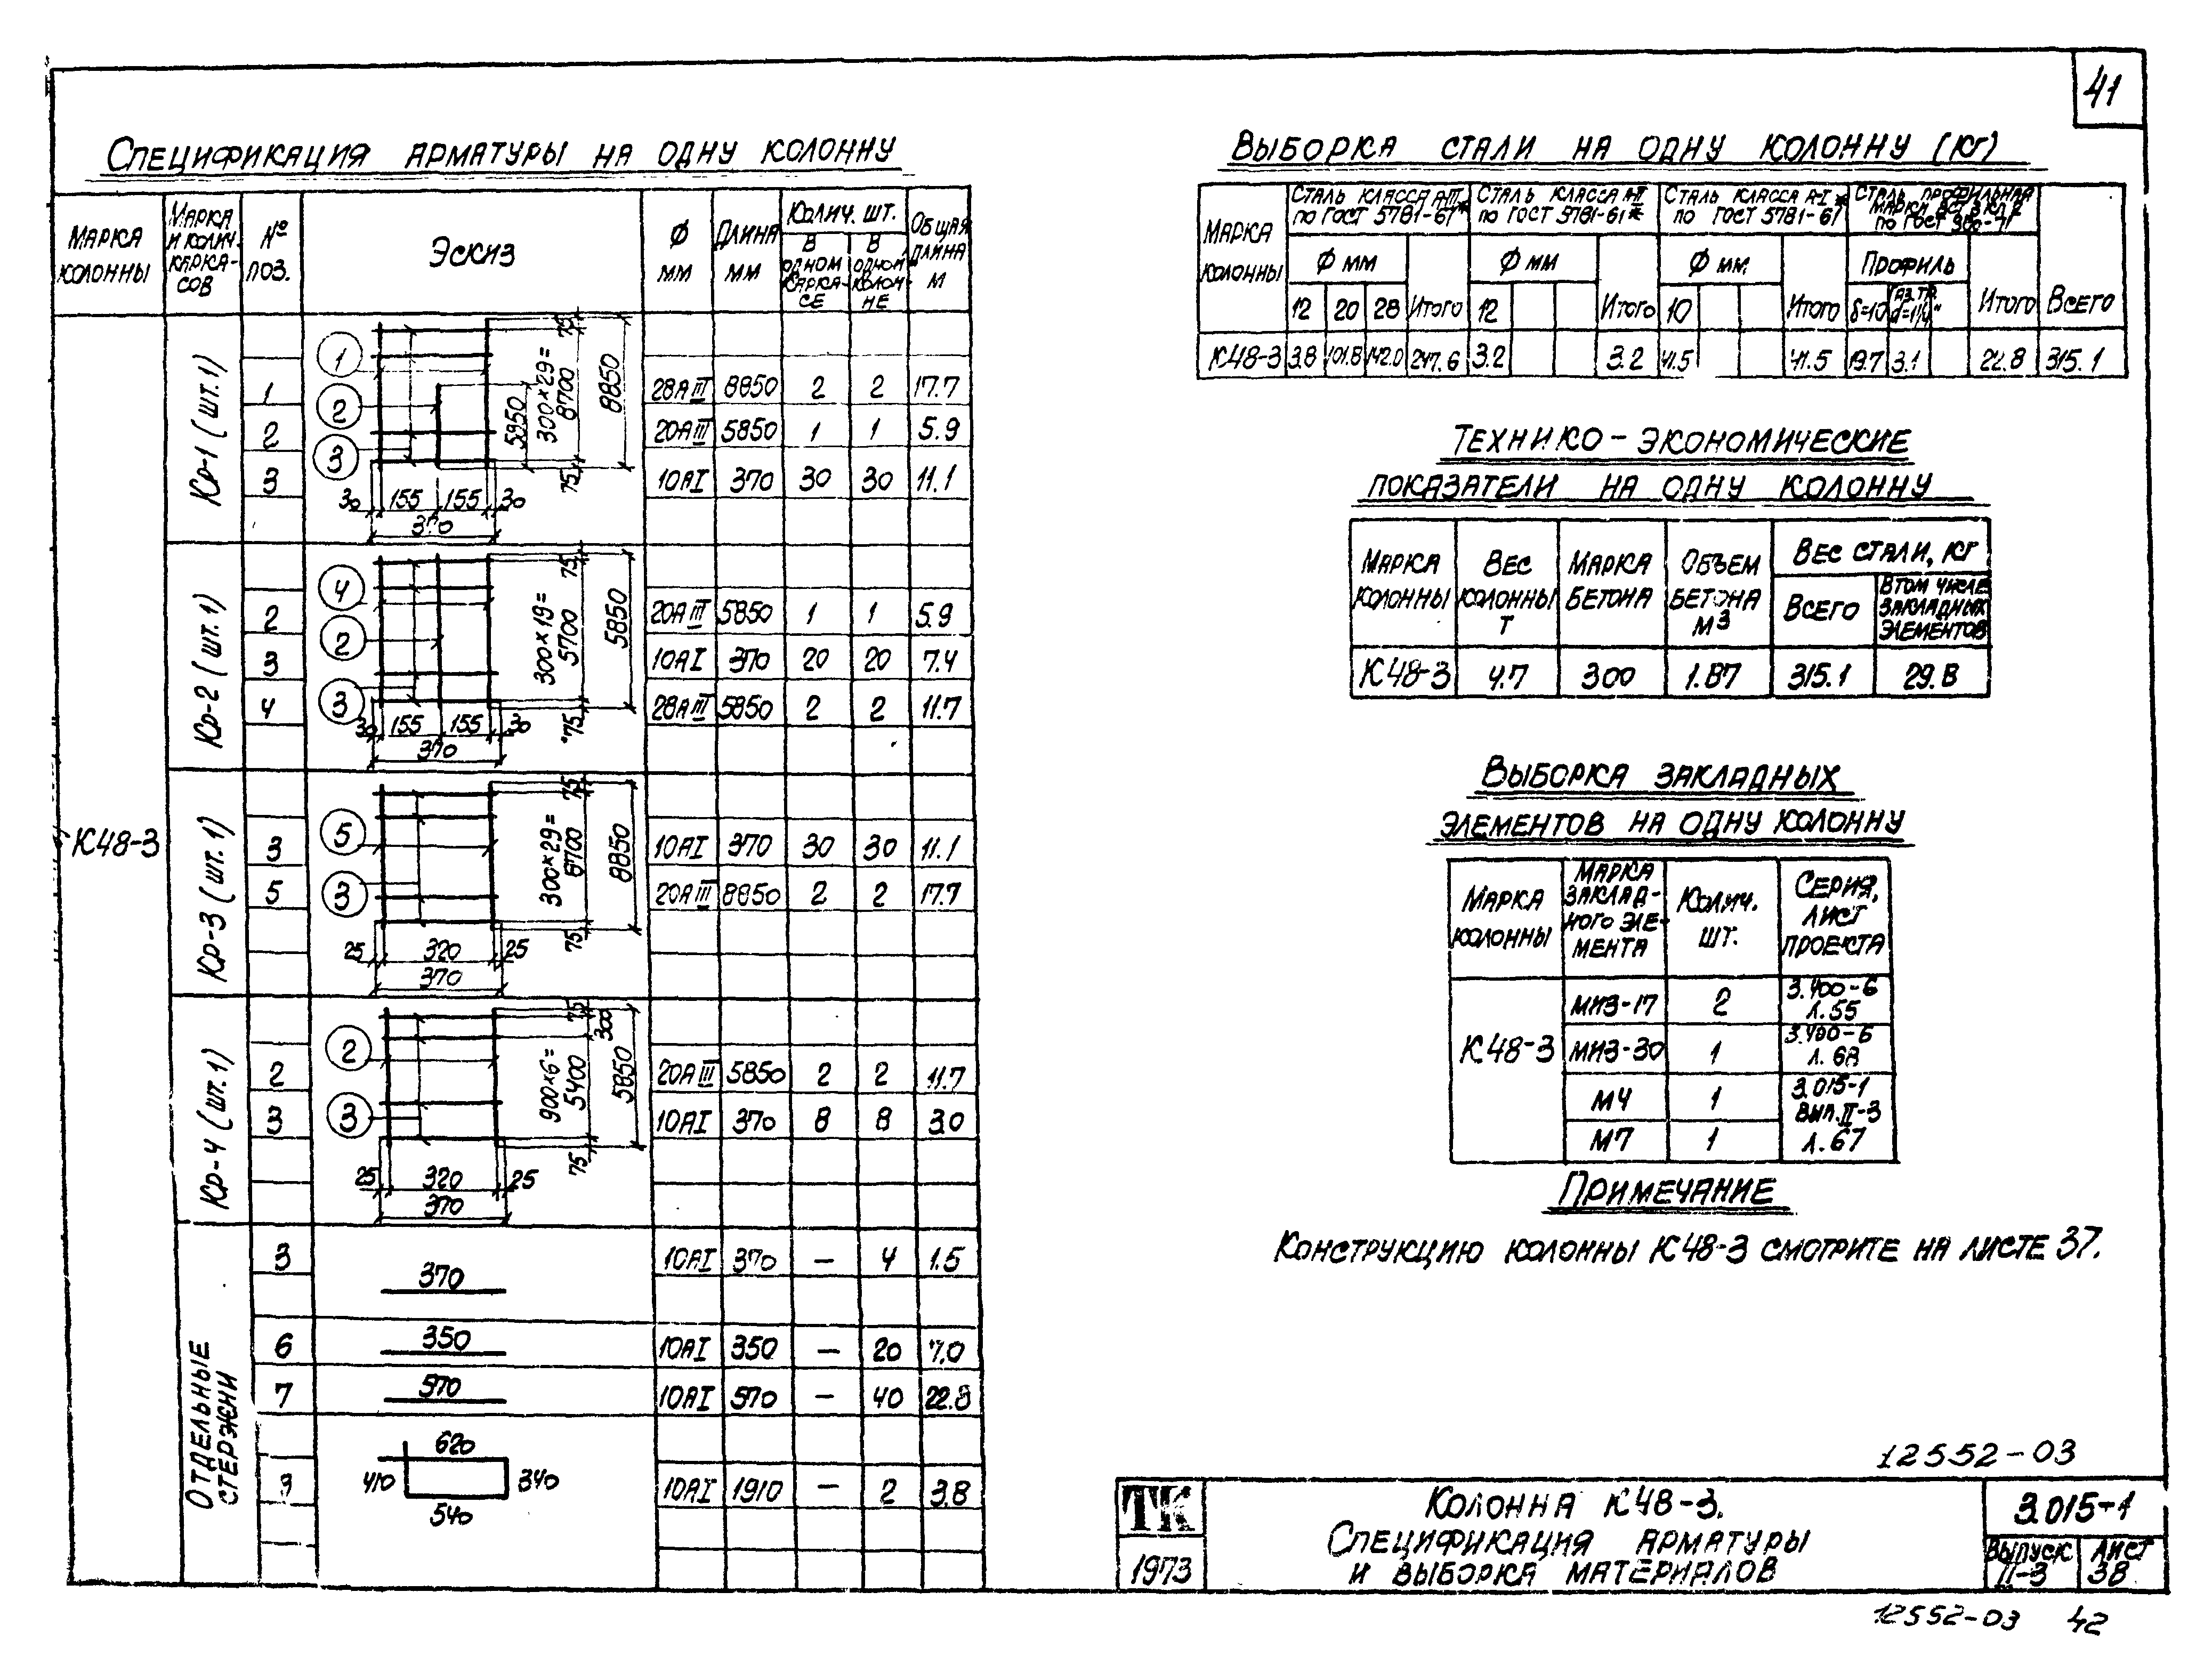 41
Спецификация арматуры на одну колонну
Марка колонны
Марка и колич. каркасов
№ поз.
Эскиз
Ф мм
Длина мм
Колич. шт.
в одном каркасе
в одной колонне
Общая длина м
К48-3
Кр-1 (шт. 1)
1 28АIII 8850 2 2 17.7
2 20АIII 5850 1 1 5.9
3 10АI 370 30 30 11.1
1 2 3
5850
300×29=
8700
8850
75
75
30 155 155 30
370
Кр-2 (шт. 1)
2 20АIII 5850 1 1 5.9
3 10АI 370 20 20 7.4
4 28АIII 5850 2 2 11.7
4 2 3
300×19=
5700
5850
75
75
30 155 155 30
370
Кр-3 (шт. 1)
3 10АI 370 30 30 11.1
5 20АIII 8850 2 2 17.7
5 3
300×29=
8700
8850
75
75
25 320 25
370
Кр-4 (шт. 1)
2 20АIII 5850 2 2 11.7
3 10АI 370 8 8 3.0
2 3
75
300
900×6=
5400
5850
75
25 320 25
370
Отдельные стержни
3 370 10АI 370 — 4 1.5
6 350 10АI 350 — 20 7.0
7 570 10АI 570 — 40 22.8
9 10АI 1910 — 2 3.8
620
410 340
540
Выборка стали на одну колонну (кг)
Марка колонны
Сталь класса А-III по ГОСТ 5781-61*
Сталь класса А-II по ГОСТ 5781-61*
Сталь класса А-I по ГОСТ 5781-61*
Сталь профильная марки ВСт 3 кп 2 по ГОСТ 380-71
Ф мм
Ф мм
Ф мм
Профиль
12 20 28 Итого 12 Итого 10 Итого δ=10 Газ. тр. d=1¼" Итого Всего
К48-3 3.8 101.8 142.0 247.6 3.2 3.2 41.5 41.5 19.7 3.1 22.8 315.1
Технико-экономические
показатели на одну колонну
Марка колонны
Вес колонны т
Марка бетона
Объем бетона м3
Вес стали, кг
Всего
В том числе закладных элементов
К48-3 4.7 300 1.87 315.1 29.8
Выборка закладных
элементов на одну колонну
Марка колонны
Марка закладного элемента
Колич. шт.
Серия, лист проекта
К48-3
МИЗ-17 2 3.400-6 л.55
МИЗ-30 1 3.400-6 л. 68
М4 1
М7 1
3.015-1
Вып. II-3
л. 67
Примечание
Конструкцию колонны К48-3 смотрите на листе 37.
12552-03
ТК
1973
Колонна К48-3.
Спецификация арматуры
и выборка материалов
3.015-1
Выпуск II-3
Лист 38
12552-03 42